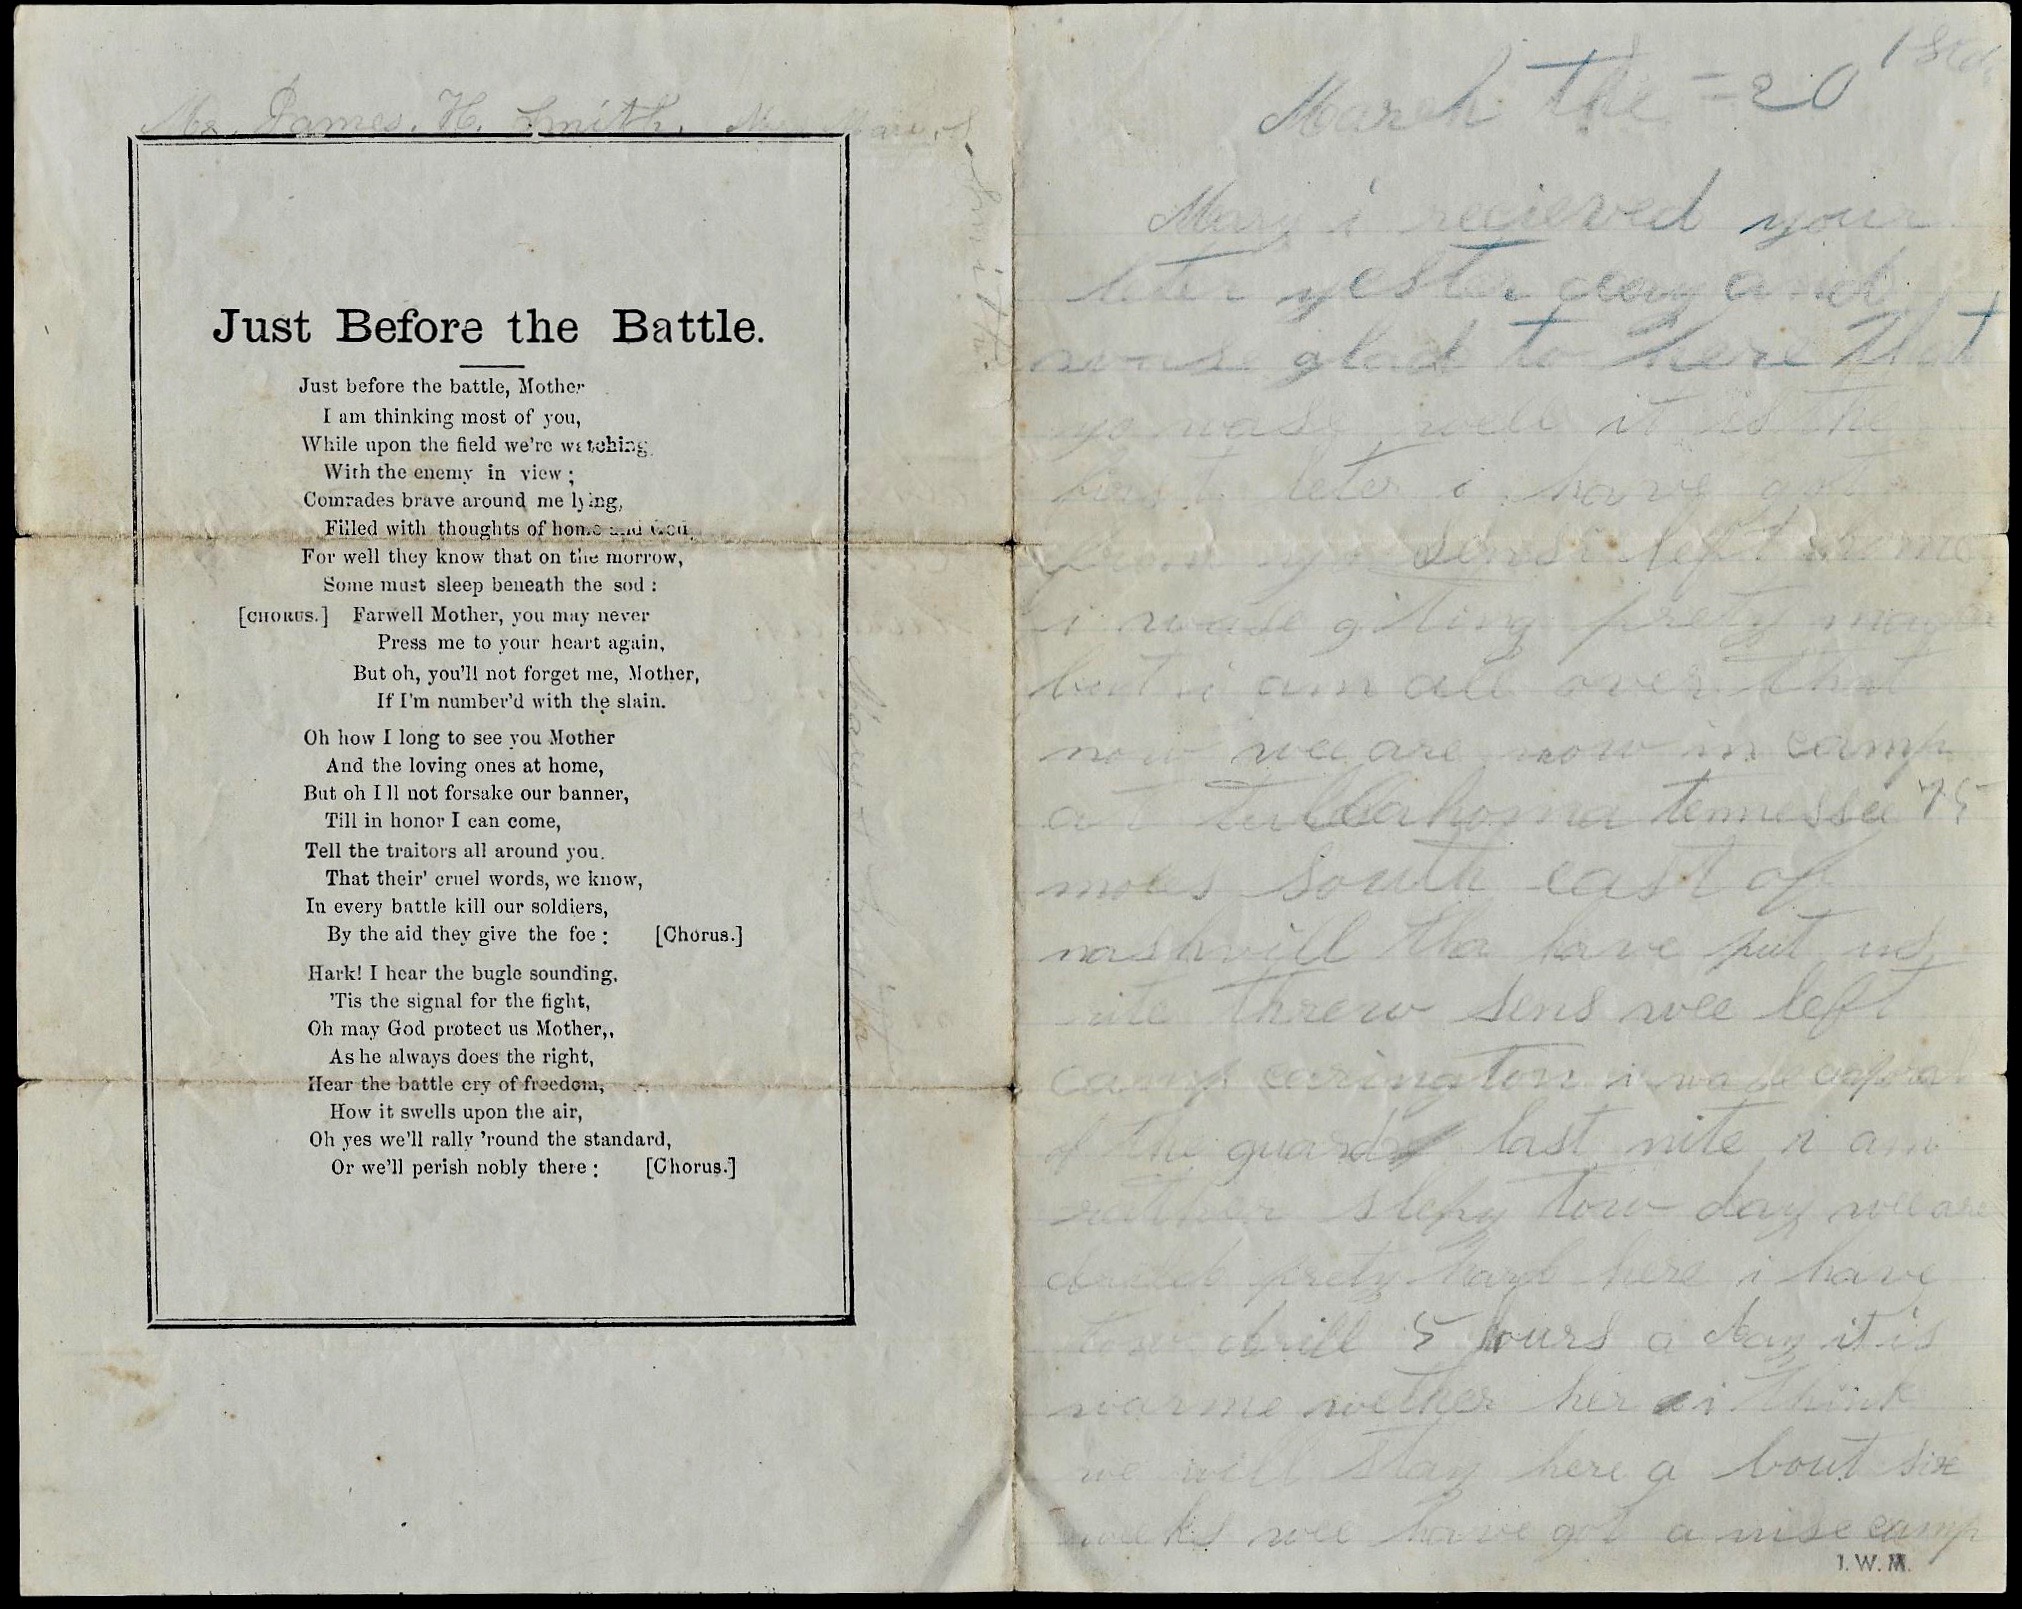 Mr. James. H. Smith. Mary. S
Smith.
Just Before the Battle.
Just before the battle, Mother
I am thinking most of you,
While upon the field we're watching
With the enemy in view ;
Comrades brave around me lying,
Filled with thoughts of home and God,
For well they know that on the morrow,
Some must sleep beneath the sod :
[CHORUS.] Farwell Mother, you may never
Press me to your heart again,
But oh, you'll not forget me, Mother,
If I'm number'd with the slain.
Oh how I long to see you Mother
And the loving ones at home,
But oh I ll not forsake our banner,
Till in honor I can come,
Tell the traitors all around you.
That their' cruel words, we know,
In every battle kill our soldiers,
By the aid they give the foe : [Chorus.]
Hark! I hear the bugle sounding,
'Tis the signal for the fight,
Oh may God protect us Mother,,
As he always does the right,
Hear the battle cry of freedom,
How it swells upon the air,
Oh yes we'll rally 'round the standard,
Or we'll perish nobly there : [Chorus.]
Mary
March the = 20
Mary i recieved your
leter yester day and
wase glad to here that
yo wase well it is the
leter i have got
from yo left
i wase giting prety
but i am all over that
now wee are now in camp
at tullahoma tennessee 75
miles south east of
nashvill tha have put us
rite threw sens wee left
camp carington i wase corporal
of the guard last nite i am
rather slepy tow day wee are
drild prety hard here i have
tow drill 5 hours a day it is
warme wether her i think
we will stay here a bout six
weeks wee have got a nise camp
I. W. M.